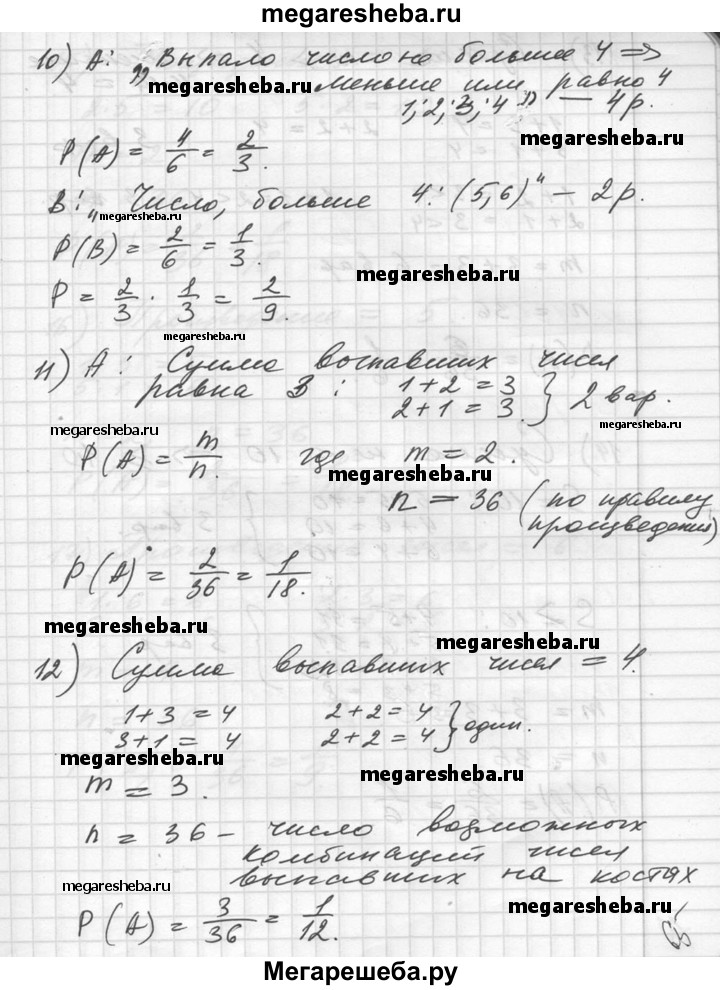 megaresheba.ru
10) A: „Выпало число не больше 4 =>
megaresheba.ru меньше или равно 4
1; 2; 3; 4" — 4р.
megaresheba.ru
P(A) = 4/6 = 2/3.
B: „Число, больше 4: (5,6)" – 2р.
megaresheba.ru
P(B) = 2/6 = 1/3.
megaresheba.ru
P = 2/3 · 1/3 = 2/9.
megaresheba.ru
11) A: Сумма выпавших чисел
равна 3: 1+2=3
2+1=3. } 2 вар.
megaresheba.ru
megaresheba.ru
P(A) = m/n. где m = 2.
megaresheba.ru
n = 36 (по правилу
произведения)
P(A) = 2/36 = 1/18.
megaresheba.ru
megaresheba.ru
12) Сумма выпавших чисел = 4.
1+3=4 2+2=4
3+1=4 2+2=4 } один.
megaresheba.ru
megaresheba.ru
m = 3.
n = 36 – число возможных
комбинаций чисел
выпавших на костях
megaresheba.ru
megaresheba.ru
P(A) = 3/36 = 1/12.
Мегарешеба.ру